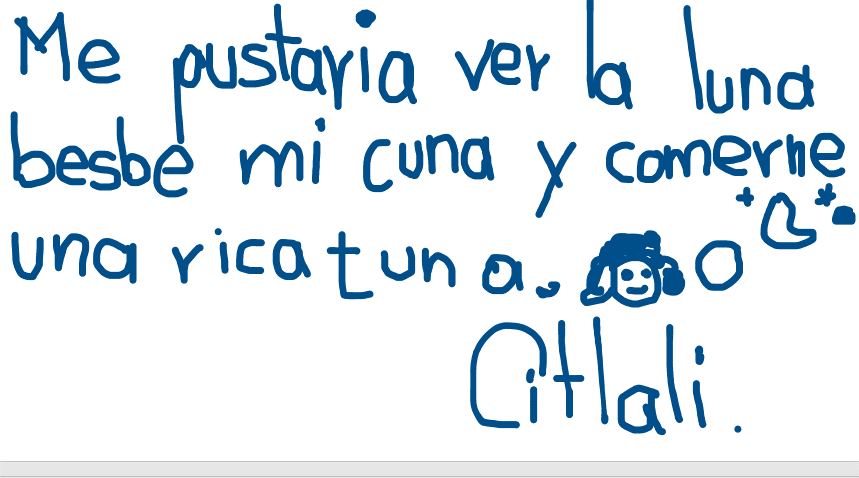 Me pustaria ver la luna
besbe mi cuna y comerne
una rica tuna.
Citlali.